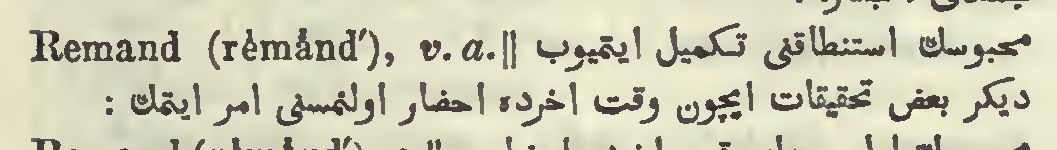 Remand (rėmånd′), v. a. || محبوسك استنطاقنی تکمیل ایتمیوب
دیکر بعض تحقیقات ایچون وقت اخرده احضار اولنمسنی امر ایتمك :